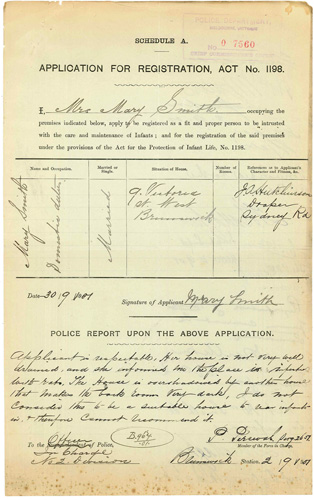 SCHEDULE A.
0 7560
APPLICATION FOR REGISTRATION, ACT No. 1198.
I, Mrs Mary Smith occupying the
premises indicated below, apply to be registered as a fit and proper person to be intrusted
with the care and maintenance of Infants; and for the registration of the said premises
under the provisions of the Act for the Protection of Infant Life, No. 1198.
Name and Occupation.
Married or Single.
Situation of House.
Number of Rooms.
References as to Applicant's Character and Fitness, &c.
Mary Smith
Domestic duties
Married
9 Victoria
St West
Brunswick
Hutchinson
Draper
Sydney Rd
Date 30/9
Signature of Applicant Mary Smith
POLICE REPORT UPON THE ABOVE APPLICATION.
Applicant is respectable. Her house is not very well
drained, and she informed me the place is
rats. The House is overshadowed by another house
that makes the back room very dark, I do not
consider this to be a suitable house to
therefore cannot recommend it.
To the Officer of Police,
In Charge
No 2 Division
Member of the Force in Charge.
Brunswick Station